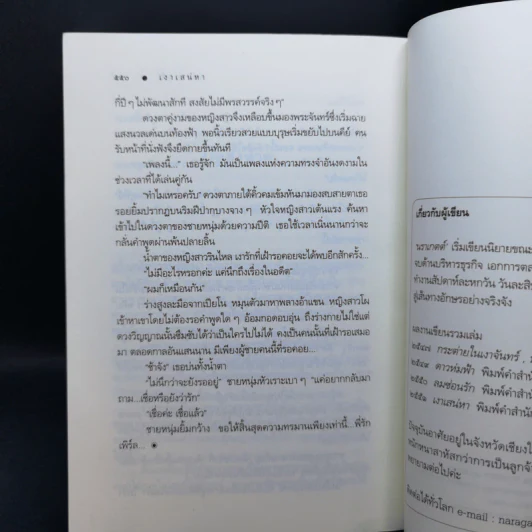 ๕๕๐ ● เงาเสน่หา
กี่ปี ๆ ไม่พัฒนาสักที สงสัยไม่มีพรสวรรค์จริง ๆ"
ดวงตาคู่งามของหญิงสาวจึงเหลือบขึ้นมองพระจันทร์ซึ่งเริ่มฉาย
แสงนวลเด่นบนท้องฟ้า พอนิ้วเรียวสวยแบบบุรุษเริ่มขยับไปบนคีย์ คน
รับหน้าที่นั่งฟังจึงยืดกายขึ้นทันที
"เพลงนี้..." เธอรู้จัก มันเป็นเพลงแห่งความทรงจำอันงดงามใน
ช่วงเวลาที่ได้เล่นคู่กัน
"ทำไมเหรอครับ" ดวงตาภายใต้คิ้วคมเข้มหันมามองสบสายตาเธอ
รอยยิ้มปรากฏบนริมฝีปากบางจาง ๆ หัวใจหญิงสาวเต้นแรง ค้นหา
เข้าไปในดวงตาของชายหนุ่มด้วยความปีติ เธอใช้เวลาเนิ่นนานกว่าจะ
กลั่นคำพูดผ่านพ้นปลายลิ้น
น้ำตาของหญิงสาวรินไหล เงารักที่เฝ้ารอคอยจะได้พบอีกสักครั้ง...
"ไม่มีอะไรหรอกค่ะ แค่นึกถึงเรื่องในอดีต"
"ผมก็เหมือนกัน"
ร่างสูงละมือจากเปียโน หมุนตัวมาหาพลางอ้าแขน หญิงสาวโผ
เข้าหาเขาโดยไม่ต้องรอคำพูดใด ๆ อ้อมกอดอบอุ่น ถึงร่างกายไม่ใช่แต่
ดวงวิญญาณนั้นซึมซับได้ว่าเป็นใครไปไม่ได้ คงเป็นคนนั้นที่เฝ้ารอเสมอ
มา ตลอดกาลอันแสนนาน มีเพียงผู้ชายคนนี้ที่รอคอย...
"ช้าจัง" เธอบ่นทั้งน้ำตา
"ไม่นึกว่าจะยังรออยู่" ชายหนุ่มหัวเราะเบา ๆ "แค่อยากกลับมา
ถาม...เชื่อหรือยังว่ารัก"
"เชื่อค่ะ เชื่อแล้ว"
ชายหนุ่มยิ้มกว้าง ขอให้สิ้นสุดความทรมานเพียงเท่านี้...พี่รัก
เพิร์ล...
เกี่ยวกับผู้เขียน
นราเกตต์ เริ่มเขียนนิยายขณะ
จบด้านบริหารธุรกิจ เอกการตล
ทำงานสัปดาห์ละหกวัน วันละสิ
สู่เส้นทางอักษรอย่างจริงจัง
ผลงานเขียนรวมเล่ม
๒๕๔๗ กระต่ายในเงาจันทร์,
๒๕๔๙ ดาวห่มฟ้า พิมพ์คำสำนั
๒๕๕๐ ลมซ่อนรัก พิมพ์คำสำนั
๒๕๕๑ เงาเสน่หา พิมพ์คำสำนั
ปัจจุบันอาศัยอยู่ในจังหวัดเชียงใ
หนักหนาสาหัสกว่าการเป็นลูกจ้
พยายามต่อไปค่ะ
ติดต่อได้ทั่วโลก e-mail : naraga